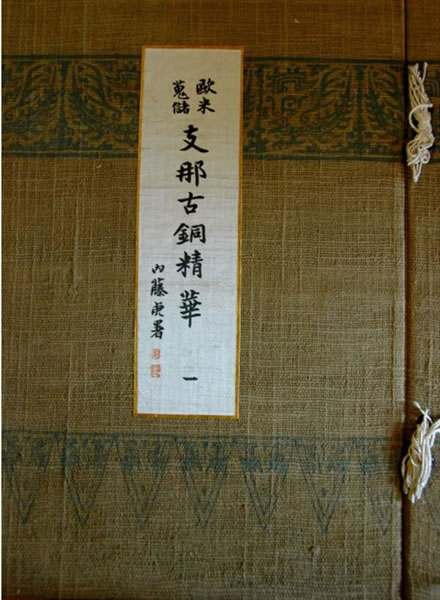 歐米
蒐儲
支那古銅精華 一
内藤虎署